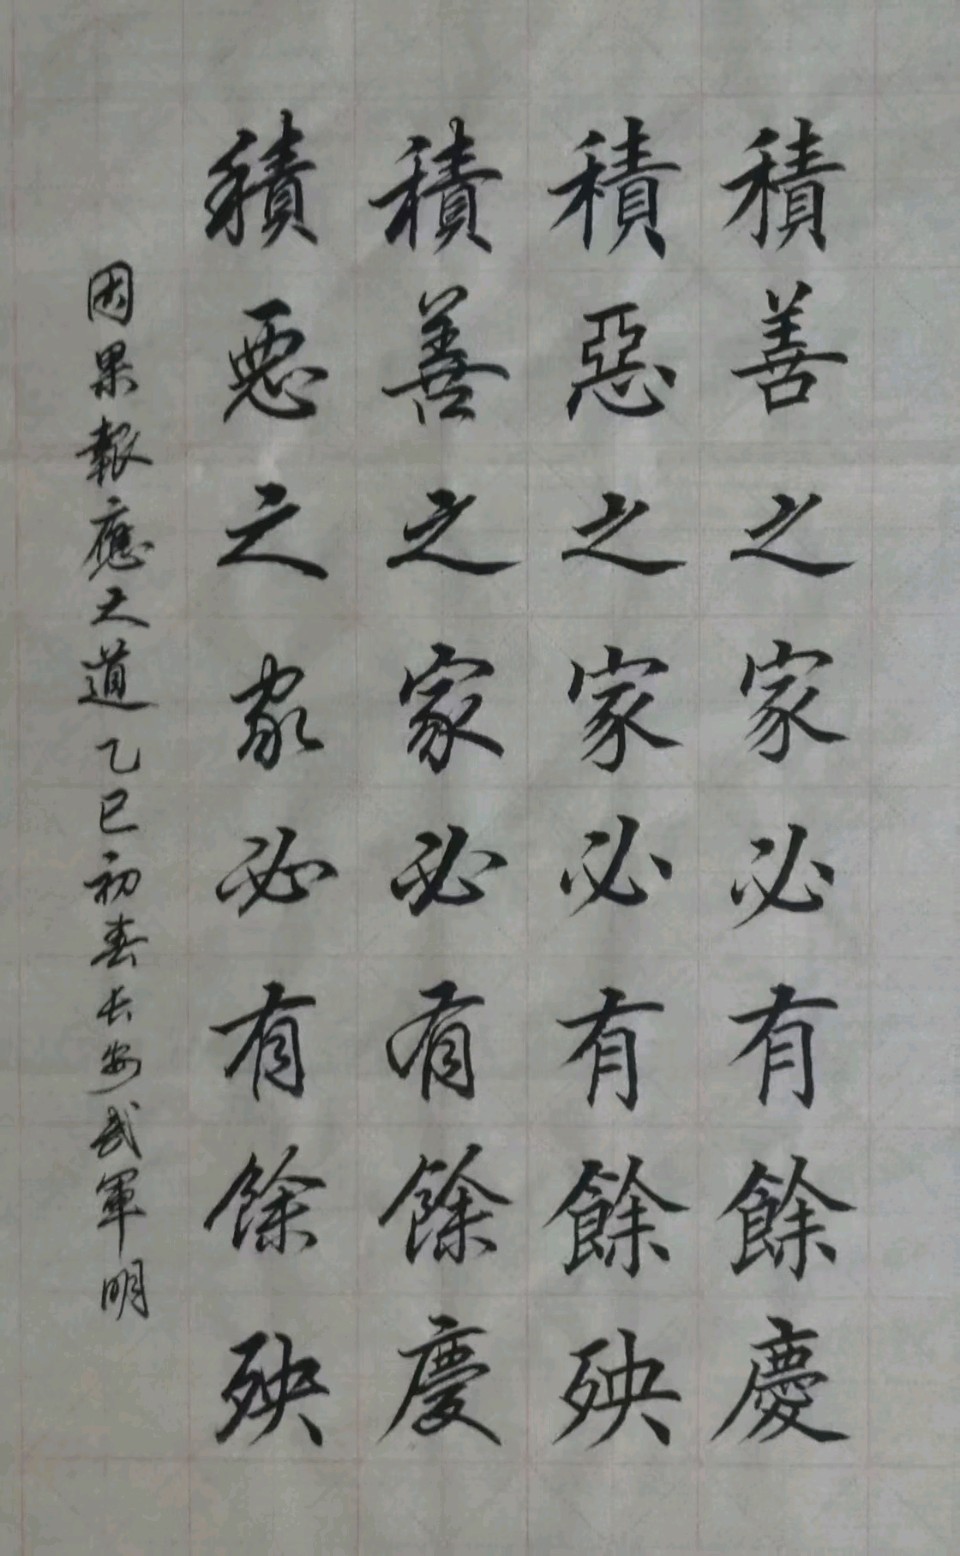 積善之家必有餘慶
積惡之家必有餘殃
積善之家必有餘慶
積惡之家必有餘殃
因果報應之道乙巳初春長安武軍明